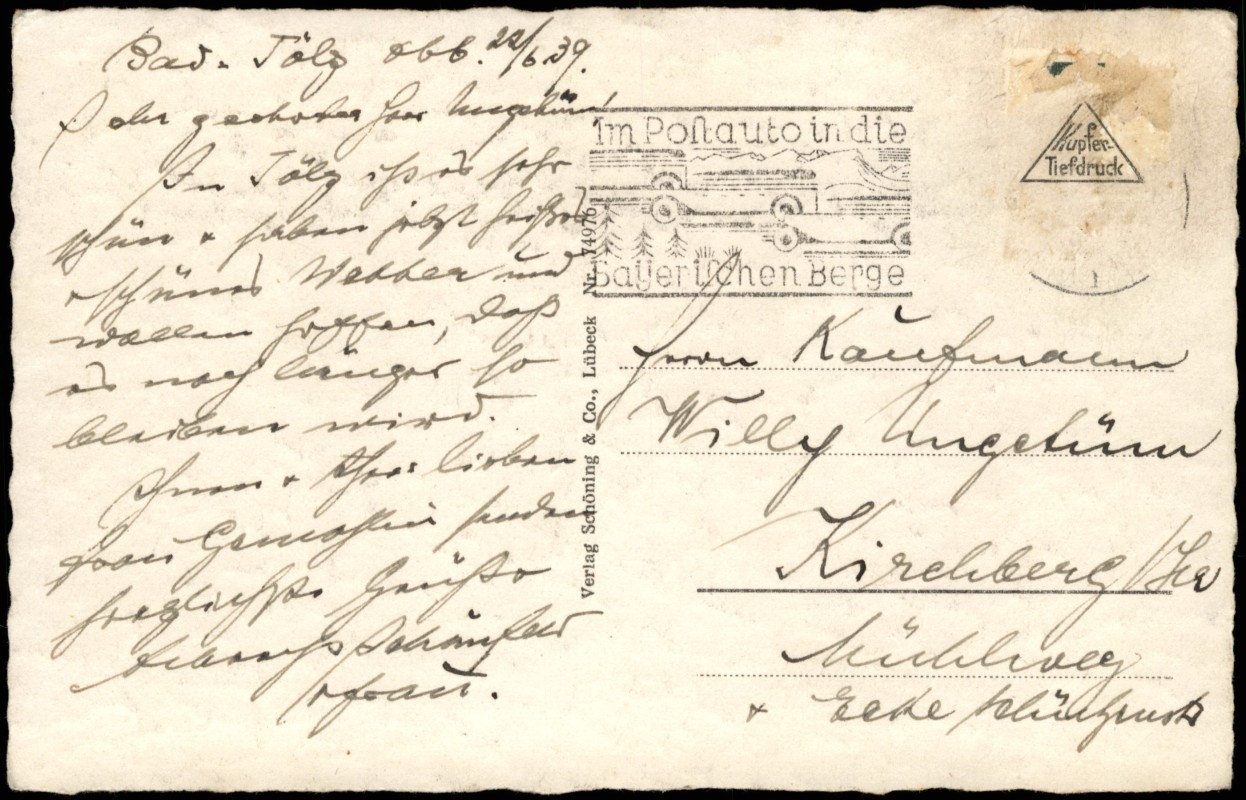 Bad-Tölz Obb. 22/6 39.
Sehr geehrter Herr Ungethüm!
In Tölz ist es sehr
schön + haben jetzt heißes
+ schönes Wetter und
wollen hoffen, daß
es noch länger so
bleiben wird.
Ihnen + Ihrer lieben
Frau Gemahlin senden
herzlichste Grüße
+ Frau.
Im Postauto in die
Bayerischen Berge
Kupfer-
Tiefdruck
Verlag Schöning & Co., Lübeck Nr. 74976
Herrn Kaufmann
Willy Ungethüm
Kirchberg
Mühlweg
+ Ecke